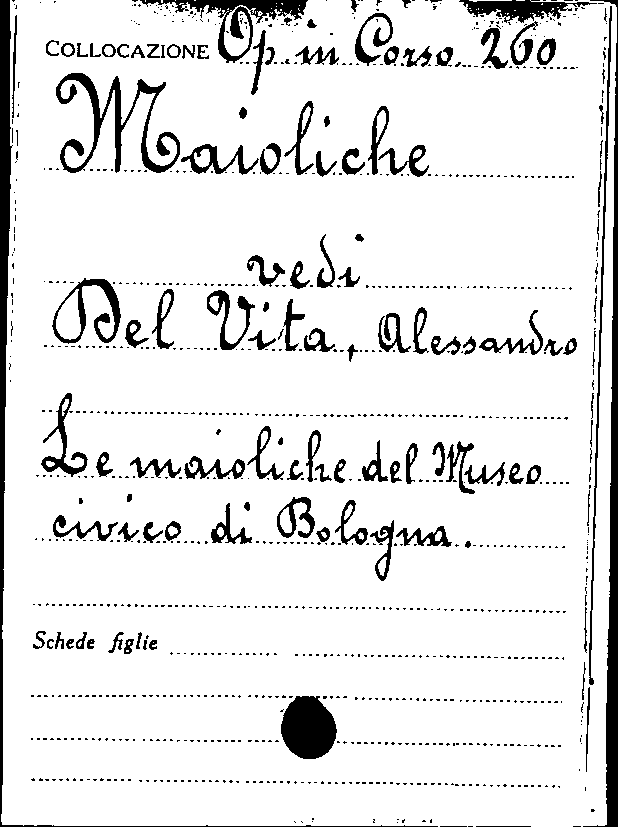 COLLOCAZIONE Op. in Corso. 260
Maioliche
vedi
Del Vita, Alessandro
Le maioliche del Museo
civico di Bologna.
Schede figlie